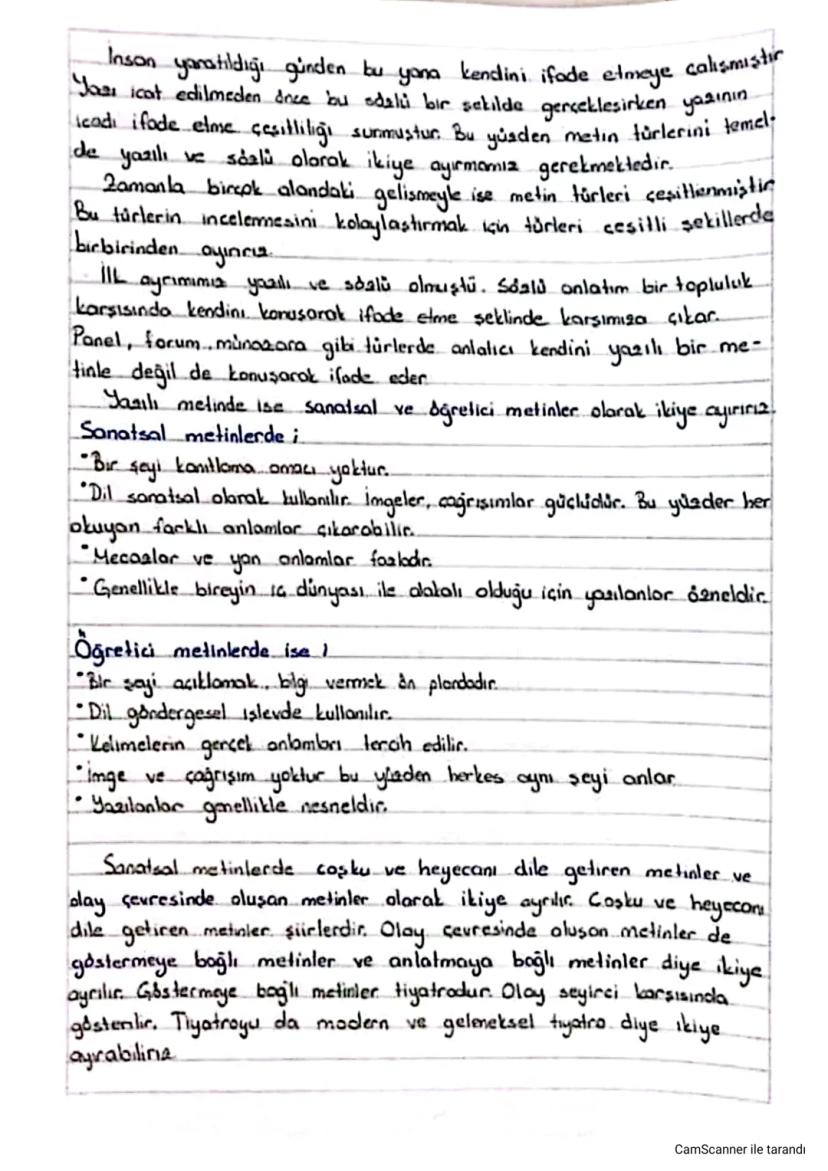 İnsan yaratıldığı günden bu yana kendini ifade etmeye çalışmıştır
Yazı icat edilmeden önce bu sözlü bir şekilde gerçekleşirken yazının
icadı ifade etme çeşitliliği sunmuştur. Bu yüzden metin türlerini temel-
de yazılı ve sözlü olarak ikiye ayırmamız gerekmektedir.
Zamanla birçok alandaki gelişmeyle ise metin türleri çeşitlenmiştir
Bu türlerin incelenmesini kolaylaştırmak için türleri çeşitli şekillerde
birbirinden ayırırız.
İlk ayrımımız yazılı ve sözlü olmuştu. Sözlü anlatım bir topluluk
karşısında kendini konuşarak ifade etme şeklinde karşımıza çıkar.
Panel, forum, münazara gibi türlerde anlatıcı kendini yazılı bir me-
tinle değil de konuşarak ifade eder
Yazılı metinde ise sanatsal ve öğretici metinler olarak ikiye ayırırız.
Sanatsal metinlerde ;
• Bir şeyi kanıtlama amacı yoktur.
• Dil sanatsal olarak kullanılır. İmgeler, çağrışımlar güçlüdür. Bu yüzden her
okuyan farklı anlamlar çıkarabilir.
• Mecazlar ve yan anlamlar fazladır.
• Genellikle bireyin iç dünyası ile alakalı olduğu için yazılanlar özneldir.
Öğretici metinlerde ise ;
• Bir şeyi açıklamak, bilgi vermek ön plandadır.
• Dil göndergesel işlevde kullanılır.
• Kelimelerin gerçek anlamları tercih edilir.
• İmge ve çağrışım yoktur bu yüzden herkes aynı şeyi anlar.
• Yazılanlar genellikle nesneldir.
Sanatsal metinlerde coşku ve heyecanı dile getiren metinler ve
olay çevresinde oluşan metinler olarak ikiye ayrılır. Coşku ve heyecanı
dile getiren metinler şiirlerdir. Olay çevresinde oluşan metinler de
göstermeye bağlı metinler ve anlatmaya bağlı metinler diye ikiye
ayrılır. Göstermeye bağlı metinler tiyatrodur. Olay seyirci karşısında
gösterilir. Tiyatroyu da modern ve geleneksel tiyatro diye ikiye
ayırabiliriz
CamScanner ile tarandı